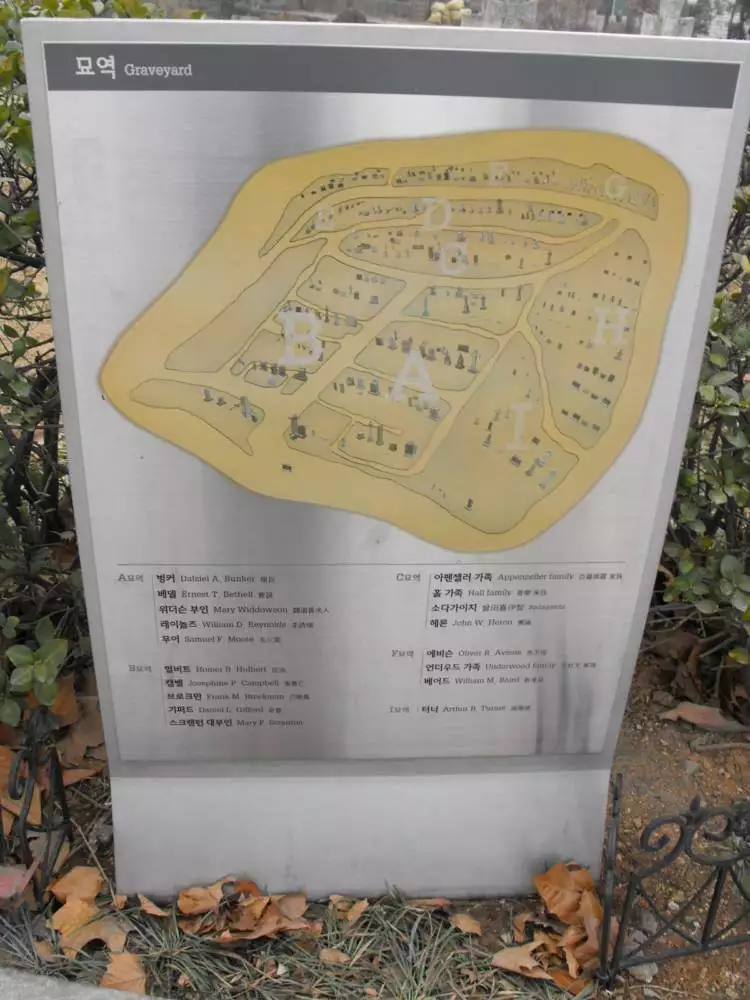 묘역 Graveyard
E G
D
C
B A H
I
A묘역 벙커 Dalziel A. Bunker
베델 Ernest T. Bethell
위더슨 부인 Mary Widdowson
레이놀즈 William D. Reynolds
무어 Samuel F. Moore
B묘역 헐버트 Homer B. Hulbert
캠벨 Josephine P. Campbell
브로크만 Frank M. Brockman
기퍼드 Daniel L. Gifford
스크랜턴 대부인 Mary F. Scranton
C묘역 아펜젤러 가족 Appenzeller family
홀 가족 Hall family
소다가이치
헤론 John W. Heron
F묘역 에비슨 Oliver R. Avison
언더우드 가족 Underwood family
베어드 William M. Baird
I묘역 터너 Arthur B. Turner